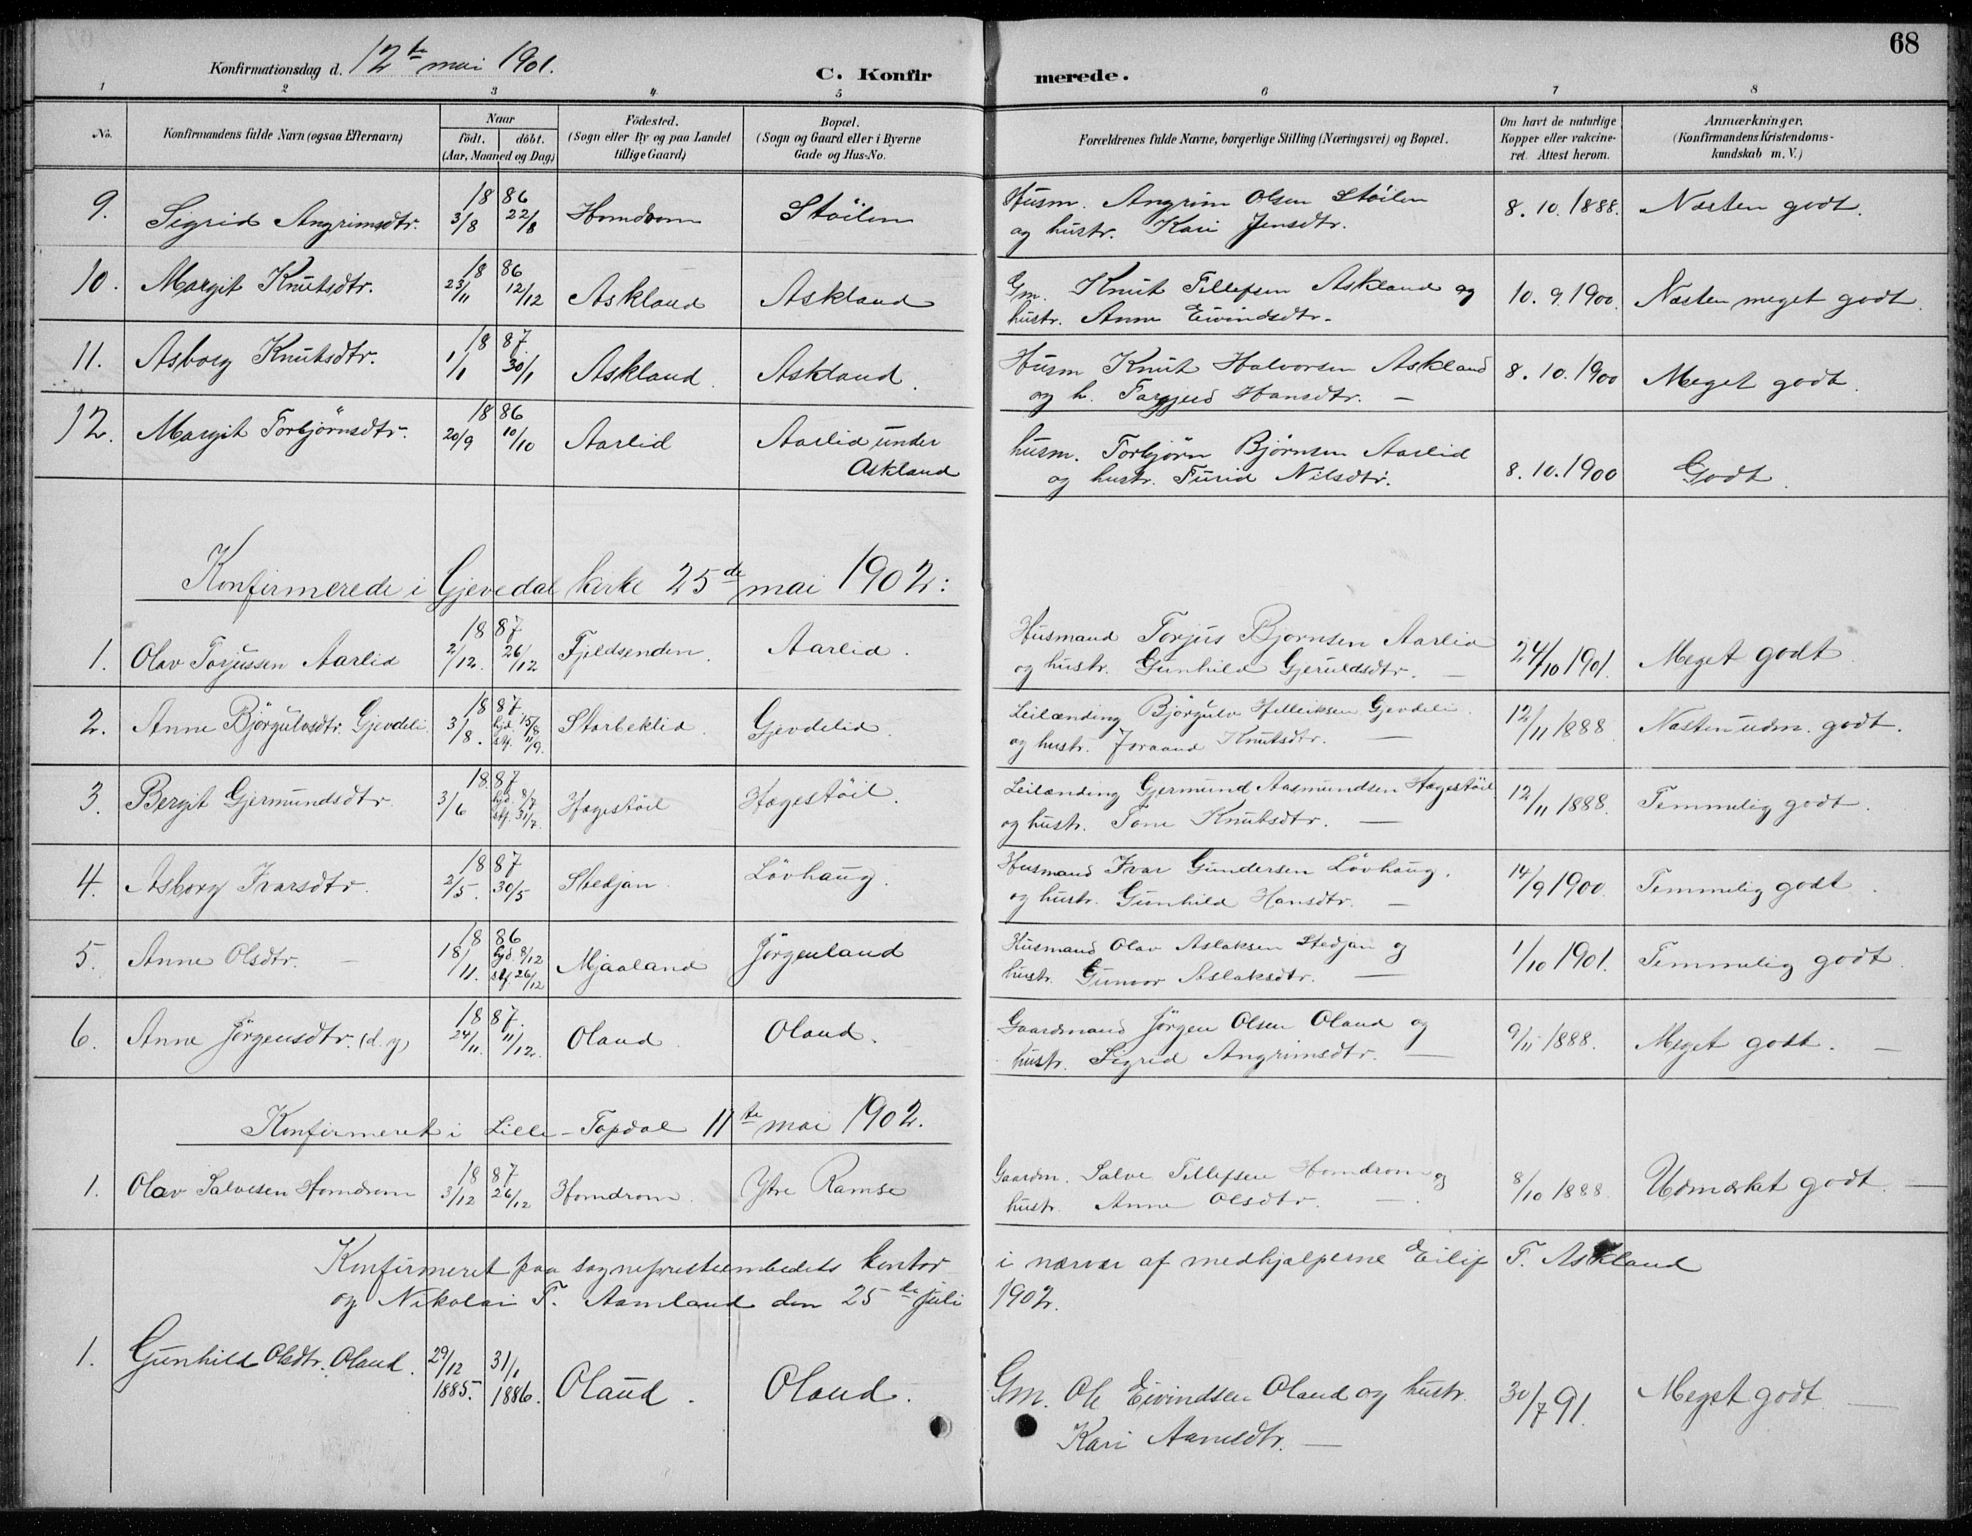 68
Konfirmationsdag d. 12te mai 1901. C. Konfirmerede.
1 2 3 4. 5 6 7 8
No. Konfirmandens fulde Navn (ogsaa Efternavn) Naar født. døbt. (Aar, Maaned og Dag) Fødested. (Sogn eller By og paa Landet tillige Gaard) Bopæl. (Sogn og Gaard eller i Byerne Gade og Hus-No. Forældrenes fulde Navne, borgerlige Stilling (Næringsvei) og Bopæl. Om havt de naturlige Kopper eller vakcineret. Attest herom. Anmærkninger. (Konfirmandens Kristendomskundskab m. V.)
9. Sigrid Angrimsdtr. 1886 3/8 22/8 Homdrom Støilen Husm. Angrim Olsen Støilen og hustr. Kari Jensdtr. 8. 10. 1888. Næsten godt.
10. Margit Knutsdtr. 1886 23/11 12/12 Askland Askland Gm. Knut Tellefsen Askland og hustr. Anne Eivindsdtr. 10. 9. 1900 Næsten meget godt.
11. Asborg Knutsdtr. 1887. 1/1 30/1 Askland. Askland. Husm Knut Halvorsen Askland og h. Targjerd Hansdtr. — 8. 10. 1900 Meget godt.
12. Margit Torbjørnsdtr. 1886 20/9 10/10 Aarlid Aarlid under Askland husm. Torbjørn Bjørnsen Aarlid og hustr. Turid Nilsdtr. 8. 10. 1900 Godt.
Konfirmerede i Gjevedal kirke 25de mai 1902:
1. Olav Torjussen Aarlid 1887. 2/12. 26/12 Fjeldsenden. Aarlid. Husmand Torjus Bjornsen Aarlid og hustr. Gunhild Gjeruldsdtr. — 24/10 1901. Meget godt
2. Anne Bjørgulvsdtr. Gjevdeli 1887. 3/8. hjd. 15/8 stf. 11/9. Storbeklid. Gjevdelid. Leilænding Bjørgulv Helleiksen Gjevdeli. og hustr. Joraand Knutsdtr. — 12/11 1888 Næsten udm. godt.
3. Bergit Gjermundsdtr. 1887 3/6 hjd. 8/7 stf. 31/7. Hægestøil Hægestøil. Leilænding Gjermund Aasmundsen Hægestøil og hustr. Tone Knutsdtr. — 12/11 1888. Temmelig godt.
4. Asborg Ivarsdtr. 1887 2/5. 30/5 Stedjan. Løvhaug. Husmand Ivar Gundersen Løvhaug. og hustr. Gunhild Hansdtr. — 14/9 1900. Temmelig godt.
5. Anne Olsdtr. — 1886 18/11. hjd. 8/12 stf. 26/12 Mjaaland Jørgenland Husmand Olav Aslaksen Stedjan og hustr. Gunvor Aslaksdtr. — 1/10 1901. Temmelig godt.
6. Anne Jørgensdtr. (d. y) 1887. 24/11. 11/12. Oland. Oland. Gaardmand Jørgen Olsen Oland og hustr. Sigrid Angrimsdtr. — 9/11 1888. Meget godt. —
Konfirmeret i Lille-Topdal 11te mai 1902.
1. Olav Salvesen Homdrom 1887 3/12 26/12 Homdrom. Ytre Ramse Gaardm. Salve Tellefsen Homdrom og hustr. Anne Olsdtr. — 8/10 1888. Udmærket godt. —
Konfirmeret paa sogneprestembedets kontor i nærvær af medhjælperne Eilif T. Askland
og Nikolai T. Aamland den 25de juli 1902.
1. Gunhild Olsdtr. Oland. 29/12 1885. 31/1 1886. Oland. Oland. Gm. Ole Eivindsen Oland og hustr. Kari Aaneldtr. — 30/7 91. Meget godt —